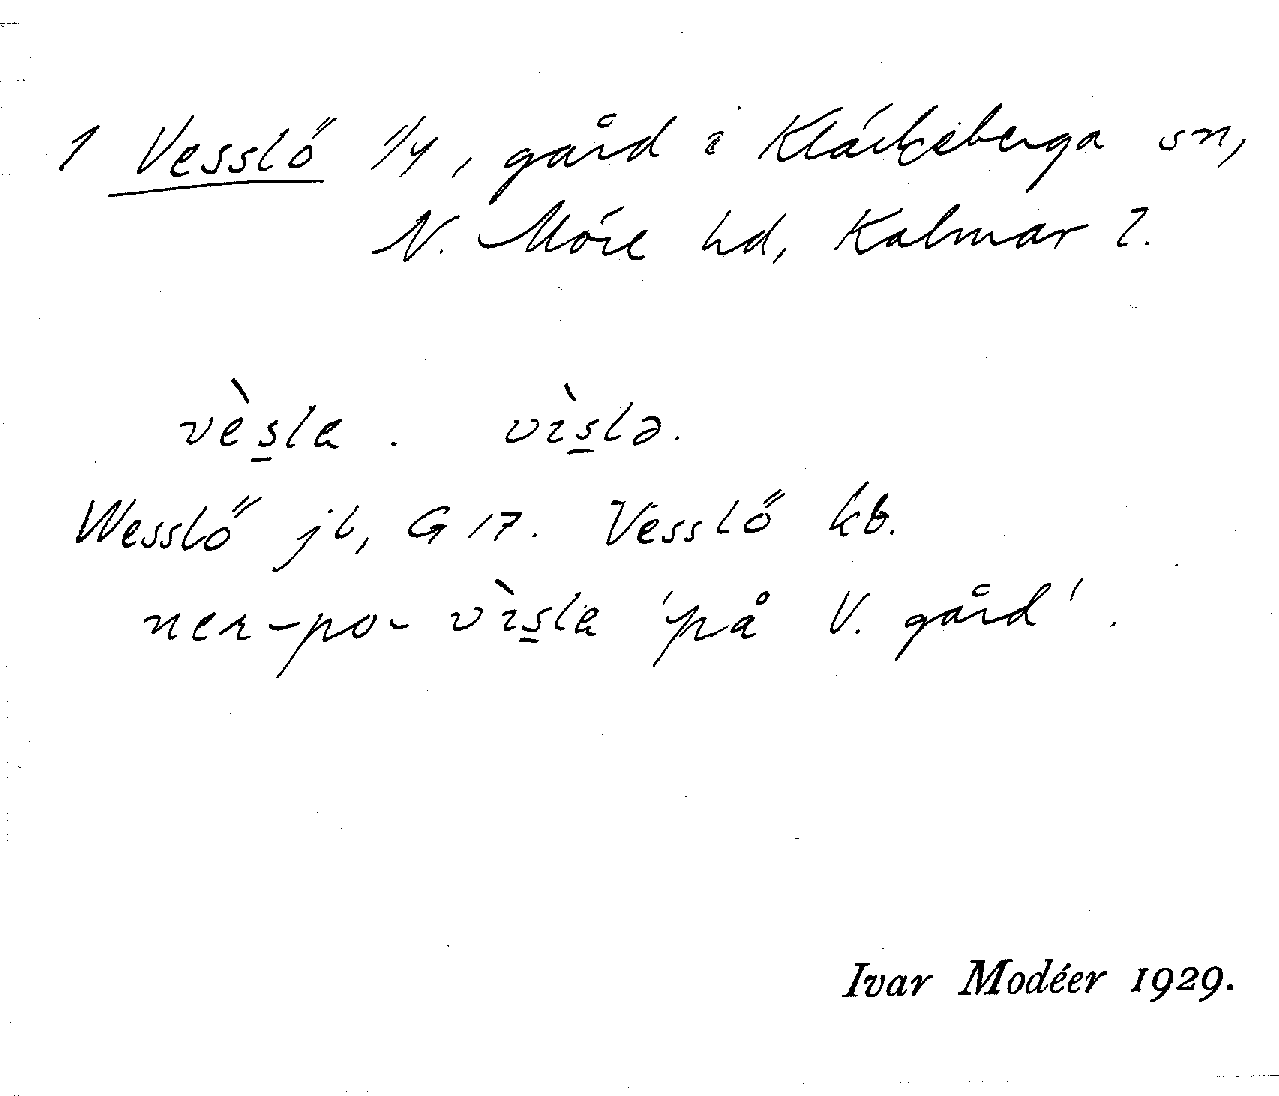 1 Vesslö 1/4, gård i Kläckeberga sn,
N. Möre hd, Kalmar l.
vèsla . vìslə.
Wesslö jb, G 17. Vesslö kb.
ner-po- vìsla 'på V. gård' .
Ivar Modéer 1929.